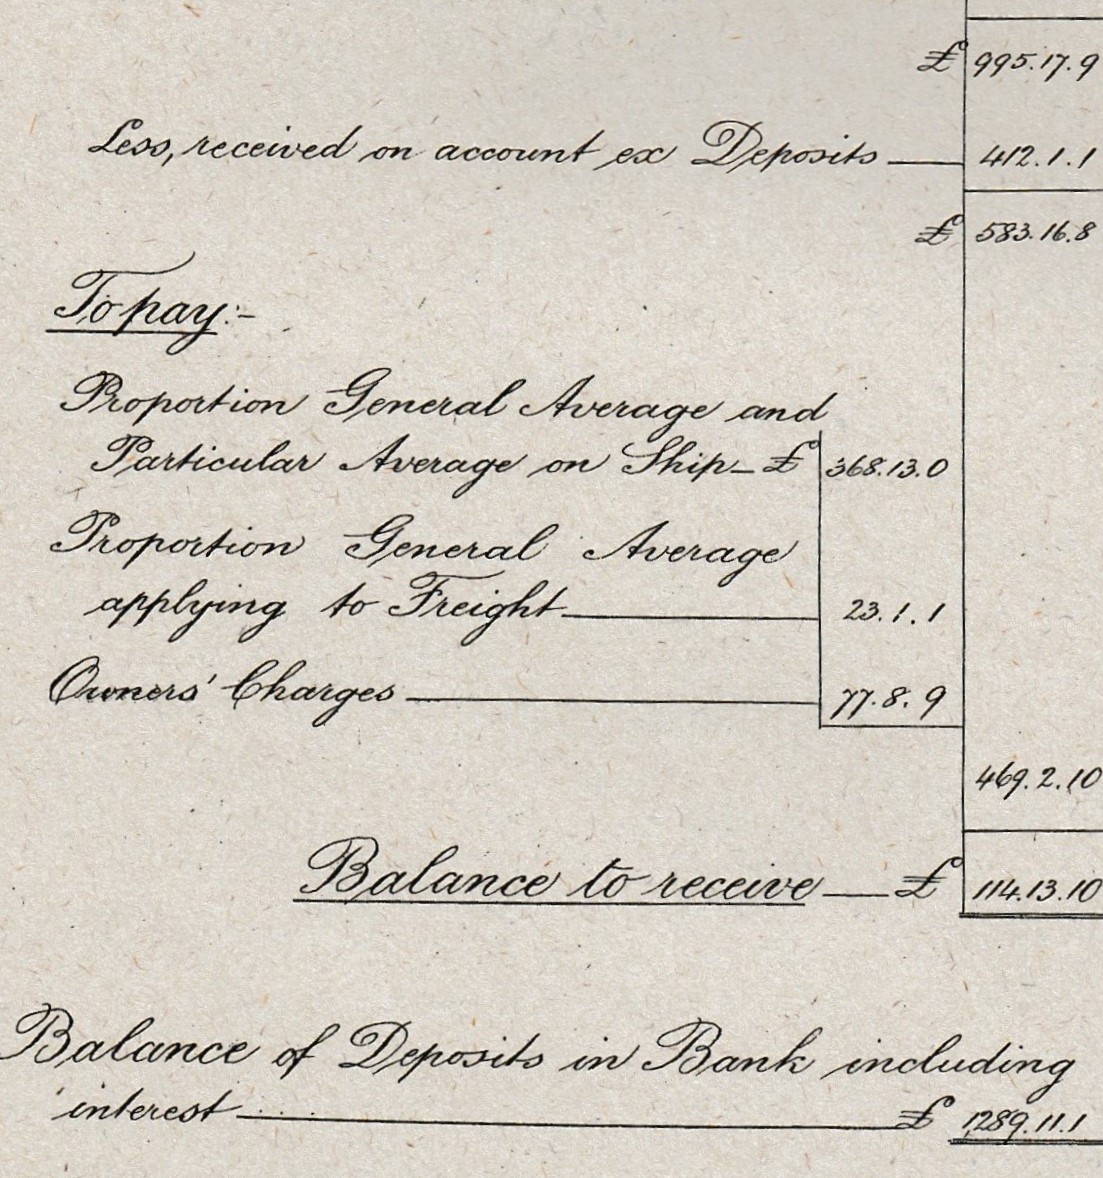 £ 995.17.9
Less, received on account ex Deposits — 412.1.1
£ 583.16.8
To pay:-
Proportion General Average and
Particular Average on Ship - £ 368.13.0
Proportion General Average
applying to Freight — 23.1.1
Owners' Charges — 77.8.9
469.2.10
Balance to receive — £ 114.13.10
Balance of Deposits in Bank including
interest — £ 1289.11.1